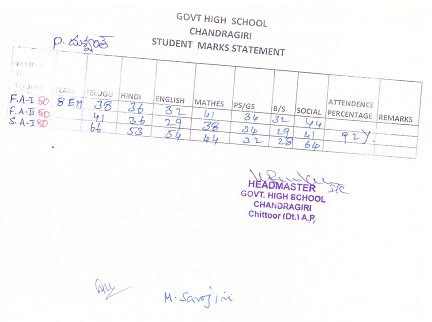 GOVT HIGH SCHOOL
CHANDRAGIRI
STUDENT MARKS STATEMENT
P. దుష్యంత్
CLASS TELUGU HINDI ENGLISH MATHES PS/GS B/S SOCIAL ATTENDENCE PERCENTAGE REMARKS
F.A-I 50 8 EM 38 36 32 41 36 32 44
F.A-II 50 41 36 29 38 34 29 41 92%
S.A-I 80 66 53 54 44 32 28 64
HEADMASTER
GOVT. HIGH SCHOOL
CHANDRAGIRI
Chittoor (Dt.) A.P,
M. Sarojini